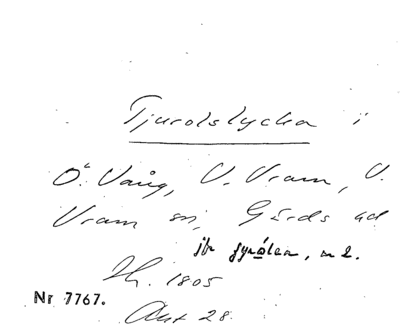 Tjurolslycka i
Ö. Vång, V. Vram, V.
Vram sn, Gärds hd
jfr fyrålen, n 2.
Sk. 1805
Nr 7767.
Akt 28